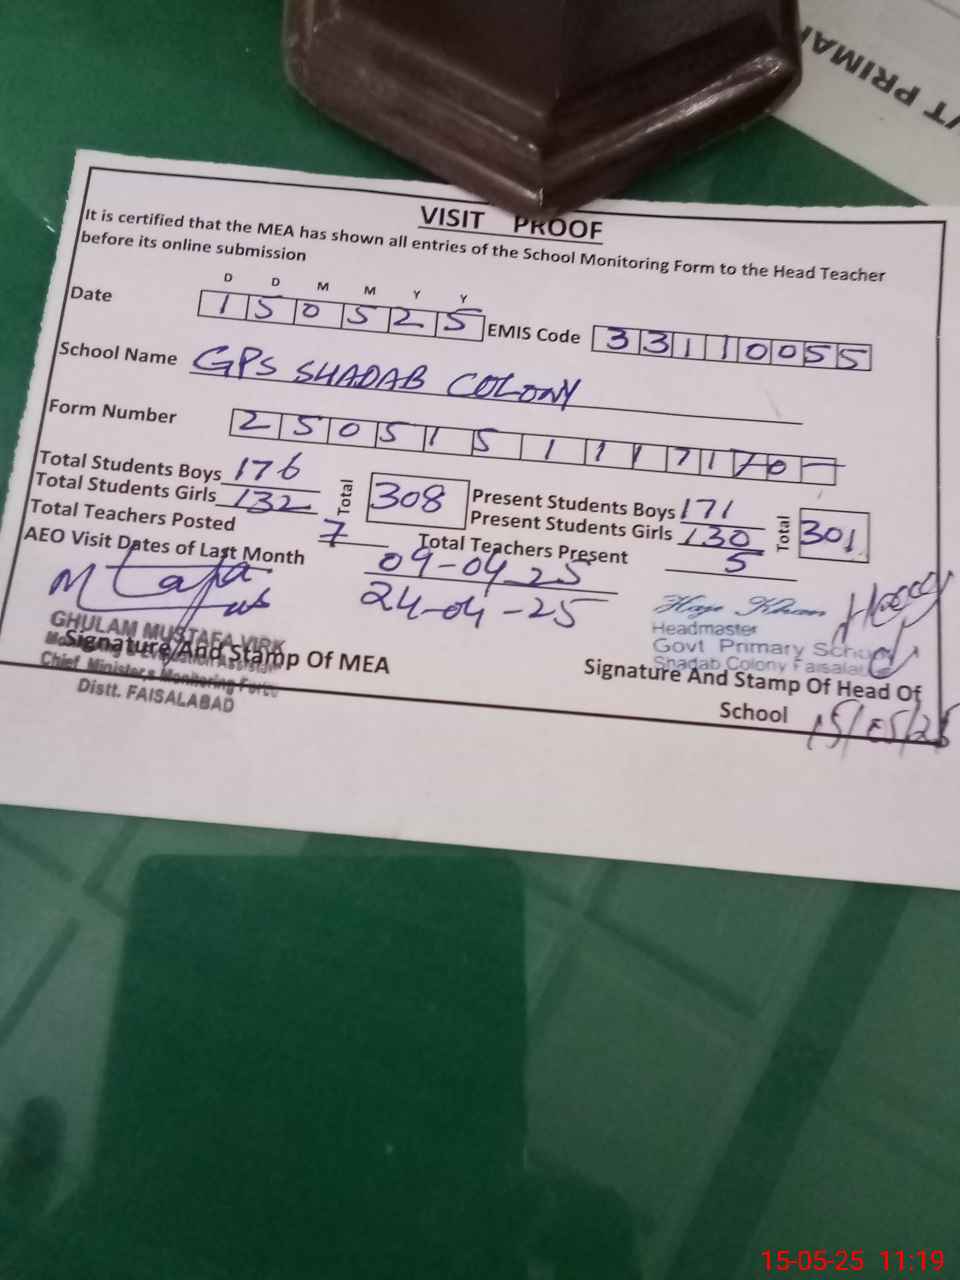 VT PRIMAR
VISIT PROOF
It is certified that the MEA has shown all entries of the School Monitoring Form to the Head Teacher
before its online submission
D D M M Y Y
Date 1 5 0 5 2 5 EMIS Code 3 3 1 1 0 0 5 5
School Name GPS SHADAB COLONY
Form Number 2 5 0 5 1 5 1 1 1 7 1 7 0 -
Total Students Boys 176 Total 308 Present Students Boys 171 Total 301
Total Students Girls 132 Present Students Girls 130
Total Teachers Posted 7 Total Teachers Present 5
AEO Visit Dates of Last Month 09-04-25
24-04-25
GHULAM MUSTAFA VIRK
Signature And Stamp Of MEA
Chief Minister's Monitoring Force
Distt. FAISALABAD
Headmaster
Govt Primary School
Shadab Colony Faisalabad
Signature And Stamp Of Head Of
School 15/05/25
15-05-25 11:19